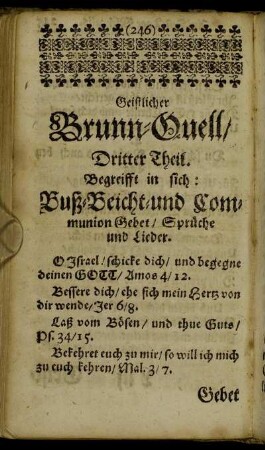 (246)
Geistlicher
Brunn-Quell/
Dritter Theil.
Begreifft in sich:
Buß-Beicht-und Com-
munion Gebet/ Sprüche
und Lieder.
O Israel/schicke dich/ und begegne
deinen GOTT/ Amos 4/12.
Bessere dich/ ehe sich mein Hertz von
dir wende/Jer 6/8.
Laß vom Bösen/ und thue Guts/
Ps. 34/15.
Bekehret euch zu mir/ so will ich mich
zu euch kehren/ Mal. 3/7.
Gebet